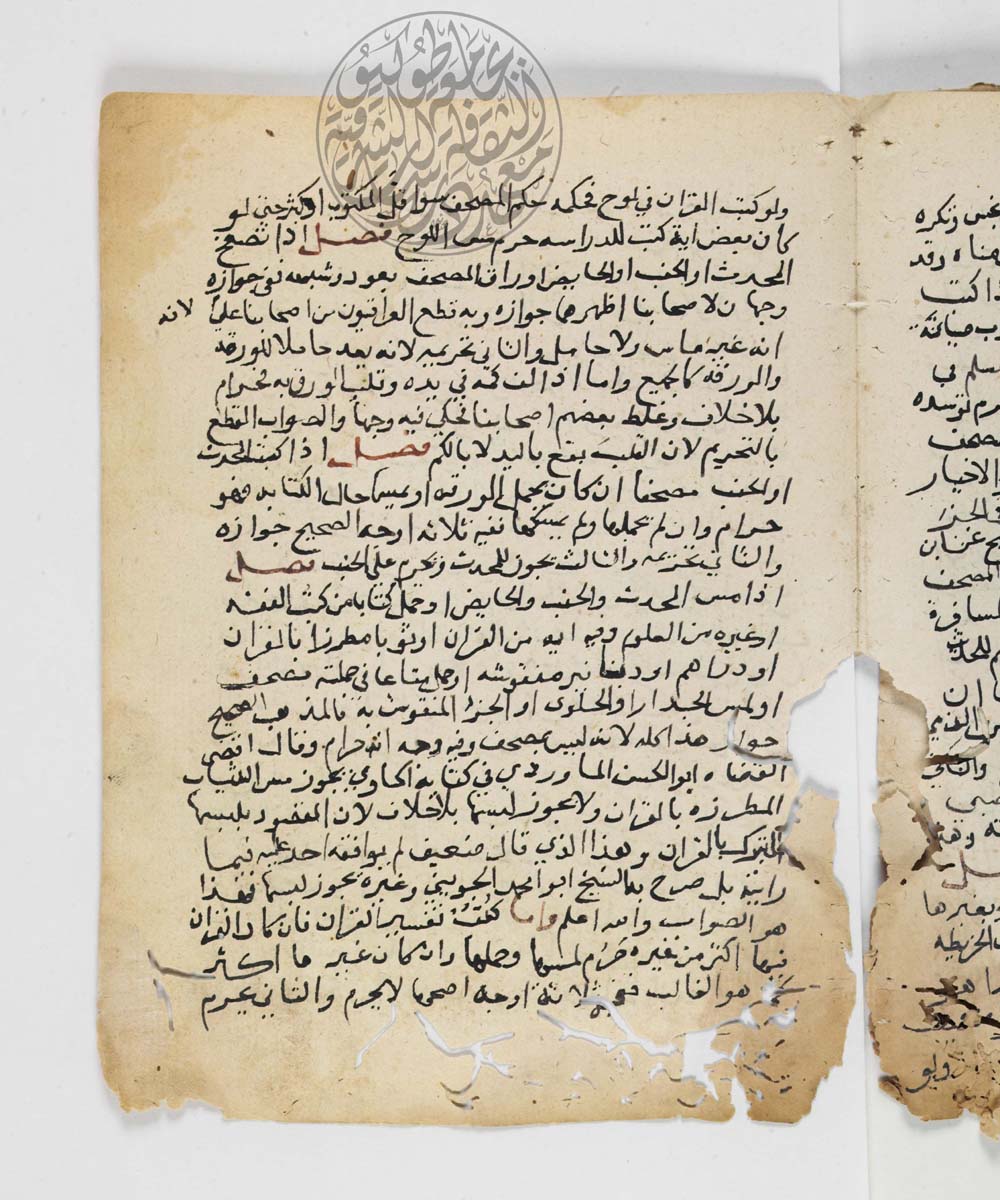 ولو كتب القران في لوح فحكمه حكم المصحف سوا قل المكتوب او كثر حتى لو
كان بعض اية كتب للدراسه حرم مس اللوح فصل اذا تصفح
المحدث او الجنب او الحايض اوراق المصحف بعود وشبهه ففي جوازه
وجهان لاصحابنا اظهرهما جوازه وبه قطع العراقيون من اصحابنا لانه
انه غير ماس ولا حامل والثاني تحريمه لانه يعد حاملا للورقة
والورقة كالجميع واما اذا لف كمه في يده وقلب الورق به فحرام
بلا خلاف وغلط بعضهم اصحابنا فحكى فيه وجها والصواب القطع
بالتحريم لان القلب يقع باليد لا بالكم فصل اذا كتب المحدث
او الجنب مصحفا ان كان يحمل الورقه او يمسها حال الكتابه فهو
حرام وان لم يحملها ولم يمسها ففيه ثلاثه اوجه الصحيح جوازه
والثاني تحريمه والثالث يجوز للمحدث ويحرم على الجنب فصل
اذا مس المحدث والجنب والحايض او حمل كتابا من كتب الفقه
او غيره من العلوم وفيه ايه من القران او ثوبا مطرزا بالقران
او دراهم او دنانير منقوشه او حمل متاعا في جملته مصحف
او لمس الجدار او الحلوى او الخبز المنقوش به فالمذهب الصحيح
جواز هذا كله لانه ليس بمصحف وفيه وجه انه حرام وقال اقضى
القضاه ابو الحسن الماوردي في كتابه الحاوي يجوز مس الثياب
المطرزه بالقران ولا يجوز لبسها بلا خلاف لان المقصود بلبسها
التبرك بالقران وهذا الذي قال ضعيف لم يوافقه احد عليه فيما
رايته بل صرح به الشيخ ابو محمد الجويني وغيره يجوز لبسها فهذا
هو الصواب والله اعلم واما كتب تفسير القران فان كان القران
فيها اكثر من غيره حرم لمسها وحملها وان كان غير ما اكثر
كما هو الغالب ففي ثلاثة اوجه اصحها لا يحرم والثاني يحرم